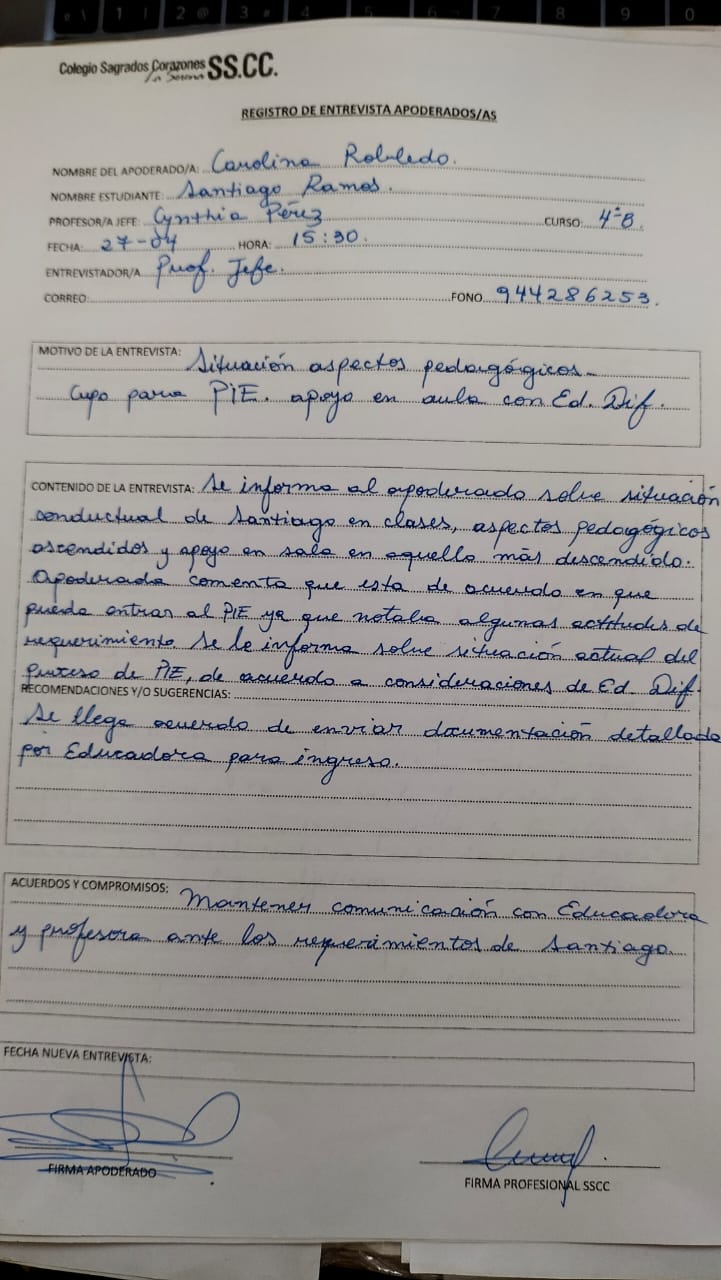 Colegio Sagrados Corazones SS.CC.
La Serena
REGISTRO DE ENTREVISTA APODERADOS/AS
NOMBRE DEL APODERADO/A: Carolina Robledo.
NOMBRE ESTUDIANTE: Santiago Ramos.
PROFESOR/A JEFE: Cynthia Pérez CURSO: 4°B.
FECHA: 27-04 HORA: 15:30.
ENTREVISTADOR/A Prof. Jefe.
CORREO: FONO 944286253.
MOTIVO DE LA ENTREVISTA: Situación aspectos pedagógicos.
Cupo para PIE. apoyo en aula con Ed. Dif.
CONTENIDO DE LA ENTREVISTA: Se informa al apoderado sobre situación
conductual de Santiago en clases, aspectos pedagógicos
ascendidos y apoyo en sala en aquello más descendido.
Apoderada comenta que esta de acuerdo en que
pueda entrar al PIE ya que notaba algunas actitudes de
requerimiento. Se le informa sobre situación actual del
proceso de PIE, de acuerdo a consideraciones de Ed. Dif.
RECOMENDACIONES Y/O SUGERENCIAS:
Se llega acuerdo de enviar documentación detallada
por Educadora para ingreso.
ACUERDOS Y COMPROMISOS: Mantener comunicación con Educadora
y profesora ante los requerimientos de Santiago.
FECHA NUEVA ENTREVISTA:
FIRMA APODERADO
FIRMA PROFESIONAL SSCC